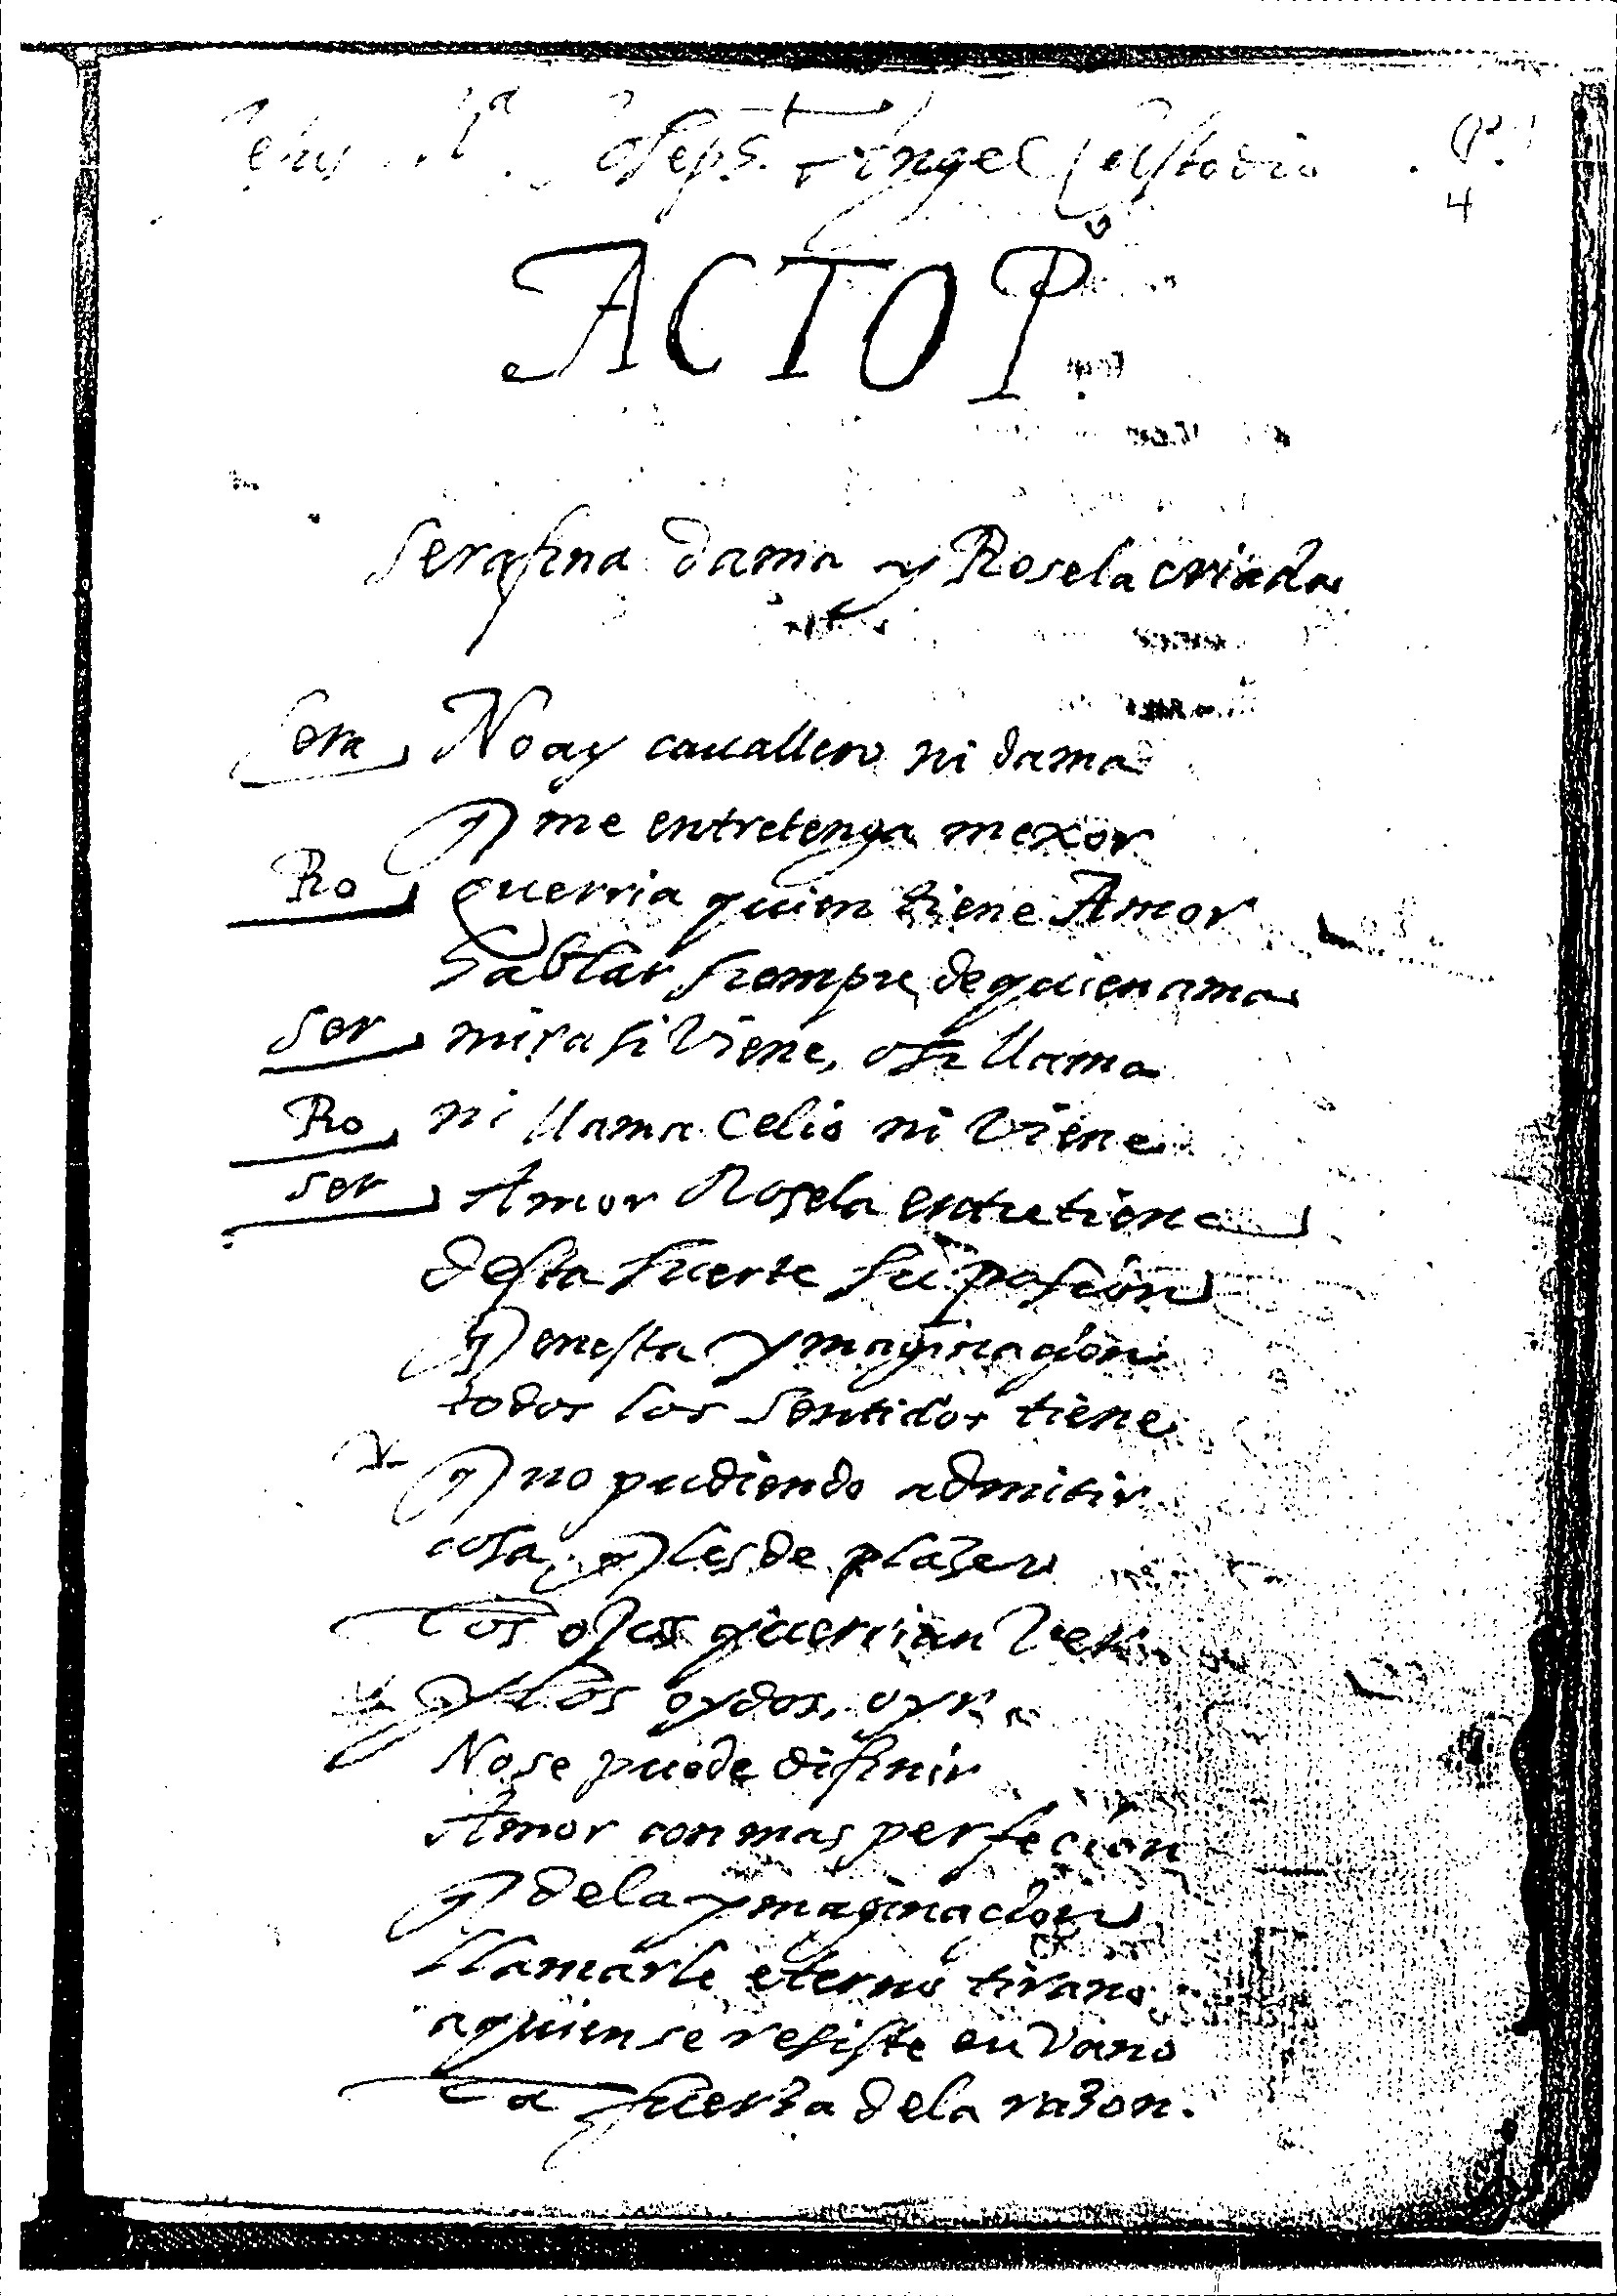 Josep Angel Custodio
4
ACTO P.º
Serafina dama y Rosela criada
Sera No ay cauallero ni dama
q me entretenga mexor
Ro querria quien tiene Amor
hablar siempre de quien ama
Ser mira si viene, o si llama
Ro ni llama Celio ni viene
Ser Amor Rosela entretiene
desta suerte su pasion
q en esta ymaginacion
todos los sentidos tiene
q no pudiendo admitir
cosa q les de plazer
los ojos querrian ver
y los oydos, oyr
No se puede difinir
Amor con mas perfecion
q de la ymaginacion
llamarle eterno tirano
a quien se resiste en vano
la fuerza de la razon.